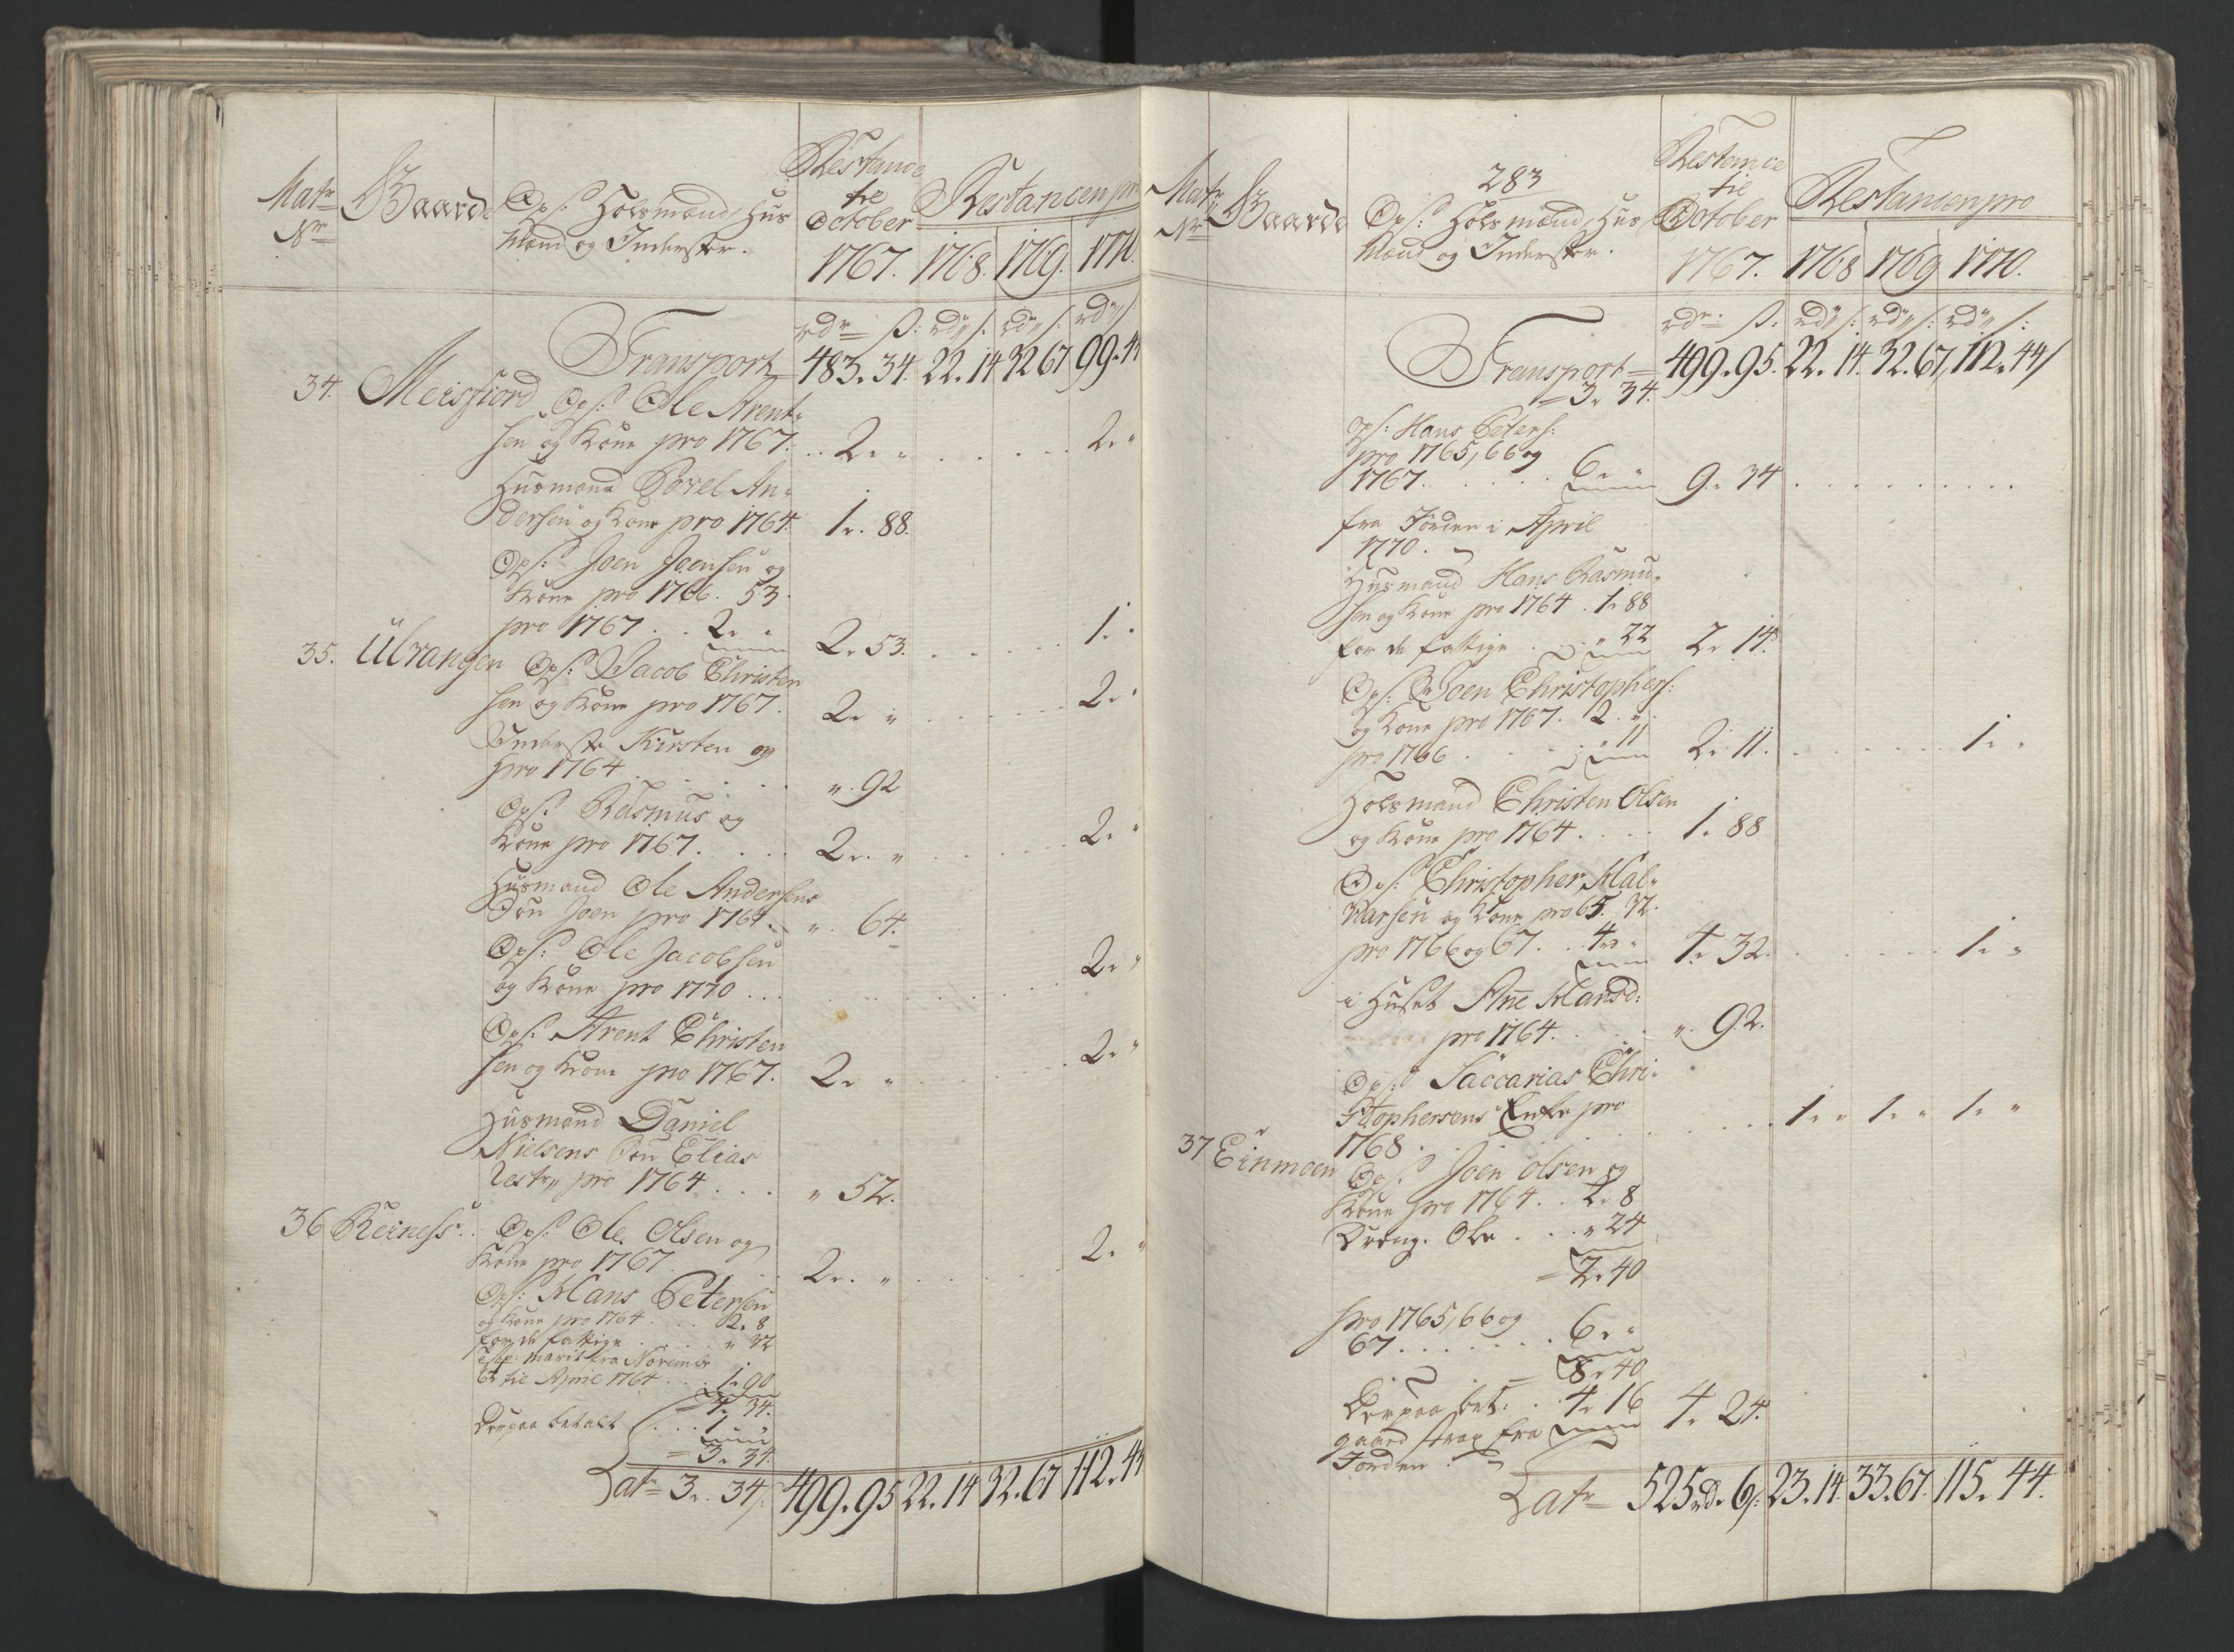 Matr Nr
Gaarde
Ops: Holsmænd, Hus
Mænd og Inderster.
Restance
til
October
1767.
Restancen pro
1768. 1769. 1770.
rdr ß: rd ß: rd ß: rd ß
Transport 483. 34. 22. 14 32 67 99. 44
34. Meisfiord Ops: Ole Arent-
sen og Kone pro 1767. .. 2. " . . . . . 2. "
Husmand Povel An-
dersen og Kone pro 1764. 1. 88.
Ops: Joen Joensen og
Kone pro 1766. 53.
pro 1767 . . 2. " 2. 53. . . . . . 1. "
35. Ulvangen Ops: Jacob Christen
sen og Kone pro 1767. 2. " . . . . . 2. "
Inderste Kirsten
pro 1764 . . . . ". 92
Ops: Rasmus og
Kone pro 1767. . . . 2. " . . . . . 2. "
Husmand Ole Andersens
Søn Joen pro 1764. ". 64.
Ops: Ole Jacobsen
og Kone pro 1770 . . . . . . . . 2. "
Ops: Arent Christen
sen og Kone pro 1767. 2. " . . . . . 2. "
Husmand Daniel
Nielsens Søn Elias
Rest pro 1764 . . . " 52.
36 Reines . . Ops: Ole Olsen og
Kone pro 1767 . . . 2. " . . . . . 2. "
Ops: Hans Petersen
og Kone pro 1764 . . . 2. 8
for de fattige . . . . " 32
marit fra Novembr
til April 1764 . . . 1. 90
= 4. 34.
Derpaa betalt . . 1. "
= 3. 34.
Latr 3. 34ß. 499. 95 22. 14 32. 67 112. 44
283
Matr Nr
Gaarde
Ops: Holsmænd, Hus
Mænd og Inderster.
Restance
til
October
1767.
Restancen pro
1768 1769 1770.
rdr. ß. rd ß: rd ß: rd ß:
Transport 499. 95. 22. 14. 32. 67, 112. 44ß
= 3. 34.
Ops: Hans Peters:
pro 1765, 66 og
1767. . . . . 6. " 9. 34 . . . . . . . .
fra Jorden i April
1770.
Husmand Hans Rasmu-
sen og Kone pro 1764 . 1. 88
for de fattige . . " 22 2. 14.
Ops: Joen Christophers:
og Kone pro 1767. 2. ".
pro 1766 . . . " 11 2. 11. . . . . . 1. "
Holsmand Christen Olsen
og Kone pro 1764 . . . 1. 88
Ops: Christopher Hal-
Warsen og Kone pro 65. 32.
pro 1766 og 67. . 4. " 4. 32. . . . . . 1. "
i Huset Ane Hansd:
pro 1764. . . . ". 92.
Ops: Saccarias Chri-
stophersens Enke pro
1768 . . . . . . . . 1. " 1. " 1. "
37 Einmoen Ops. Joen Olsen og
Kone pro 1764 . . 2. 8
Dreng. Ole . . . " 24
= 2. 40
pro 1765, 66 og
67. . . . . . . 6. "
= 8. 40
Derpaa bet: . . 4. 16 4. 24.
gaard fra
Jorden.
Latr 525rd. 6ß. 23. 14. 33. 67. 115. 44.